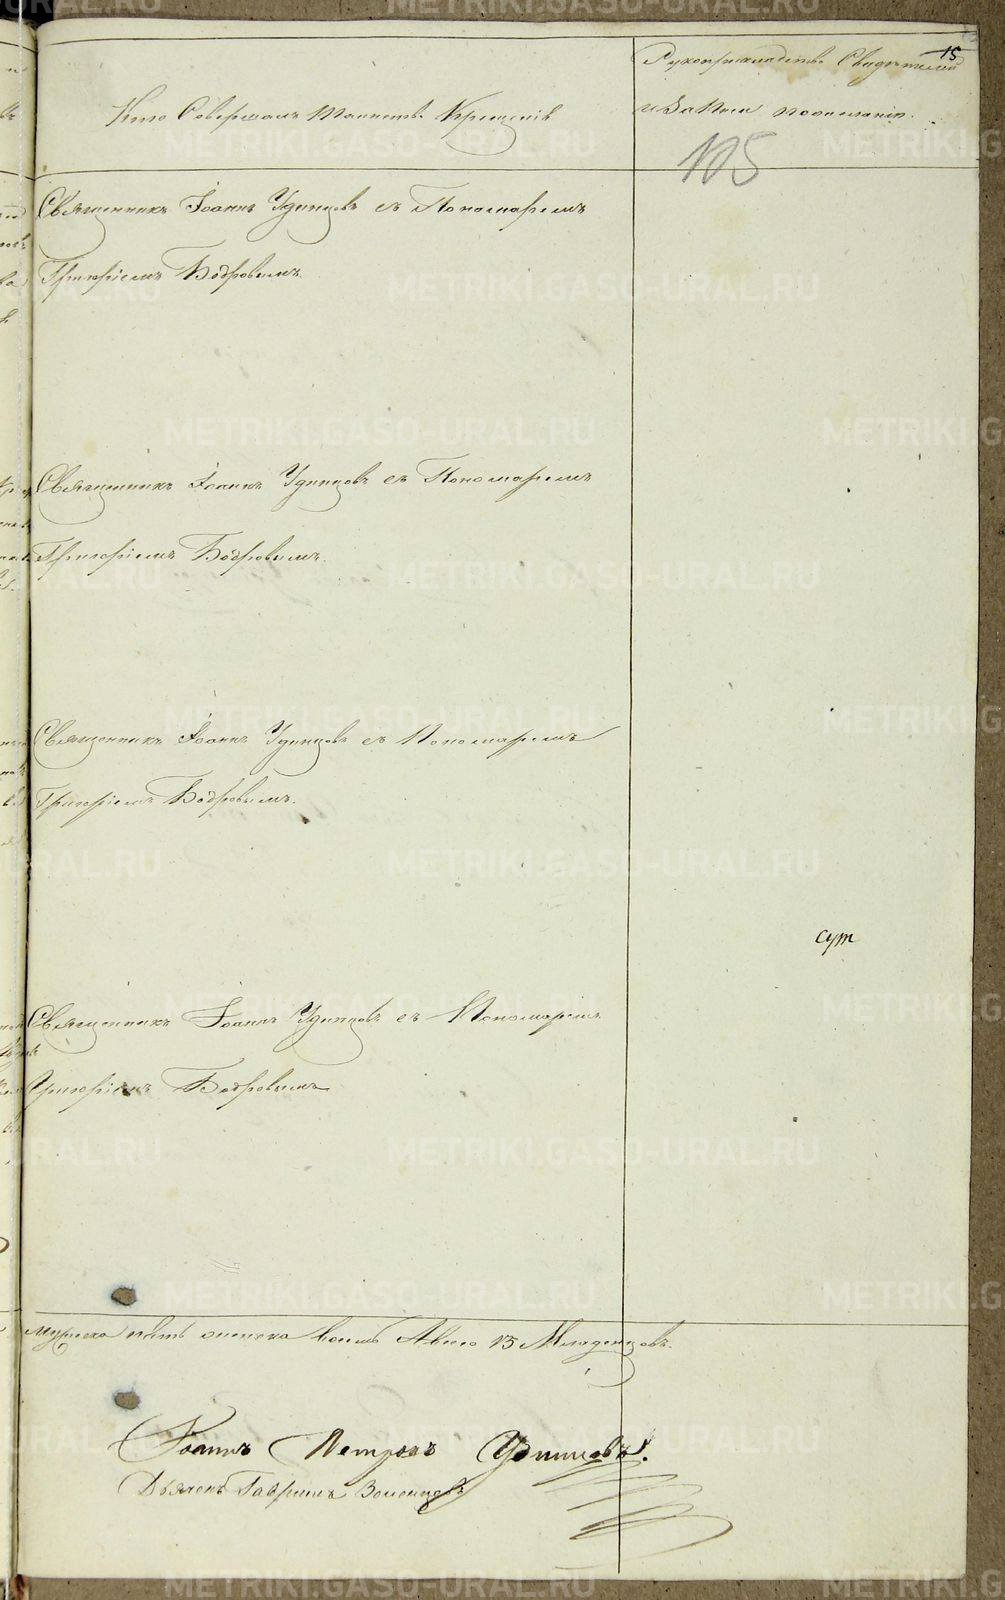 15
Рукоприкладство Свидетелей
Кто Совершалъ Таинство Крещенія
по желанію.
105
Священникъ Іоаннъ Удинцовъ съ Пономаремъ
Григоріемъ Бобровымъ.
Священникъ Іоаннъ Удинцовъ съ Пономаремъ
Григоріемъ Бобровымъ.
Священникъ Іоаннъ Удинцовъ съ Пономаремъ
Григоріемъ Бобровымъ.
сут
Священникъ Іоаннъ Удинцовъ съ Пономаремъ
Григоріемъ Бобровымъ
мужеска пять женска восемь Обоего 13 Младенцовъ.
Іоаннъ Петровъ Удинцовъ.
Дьячекъ Гавріилъ
METRIKI.GASO-URAL.RU